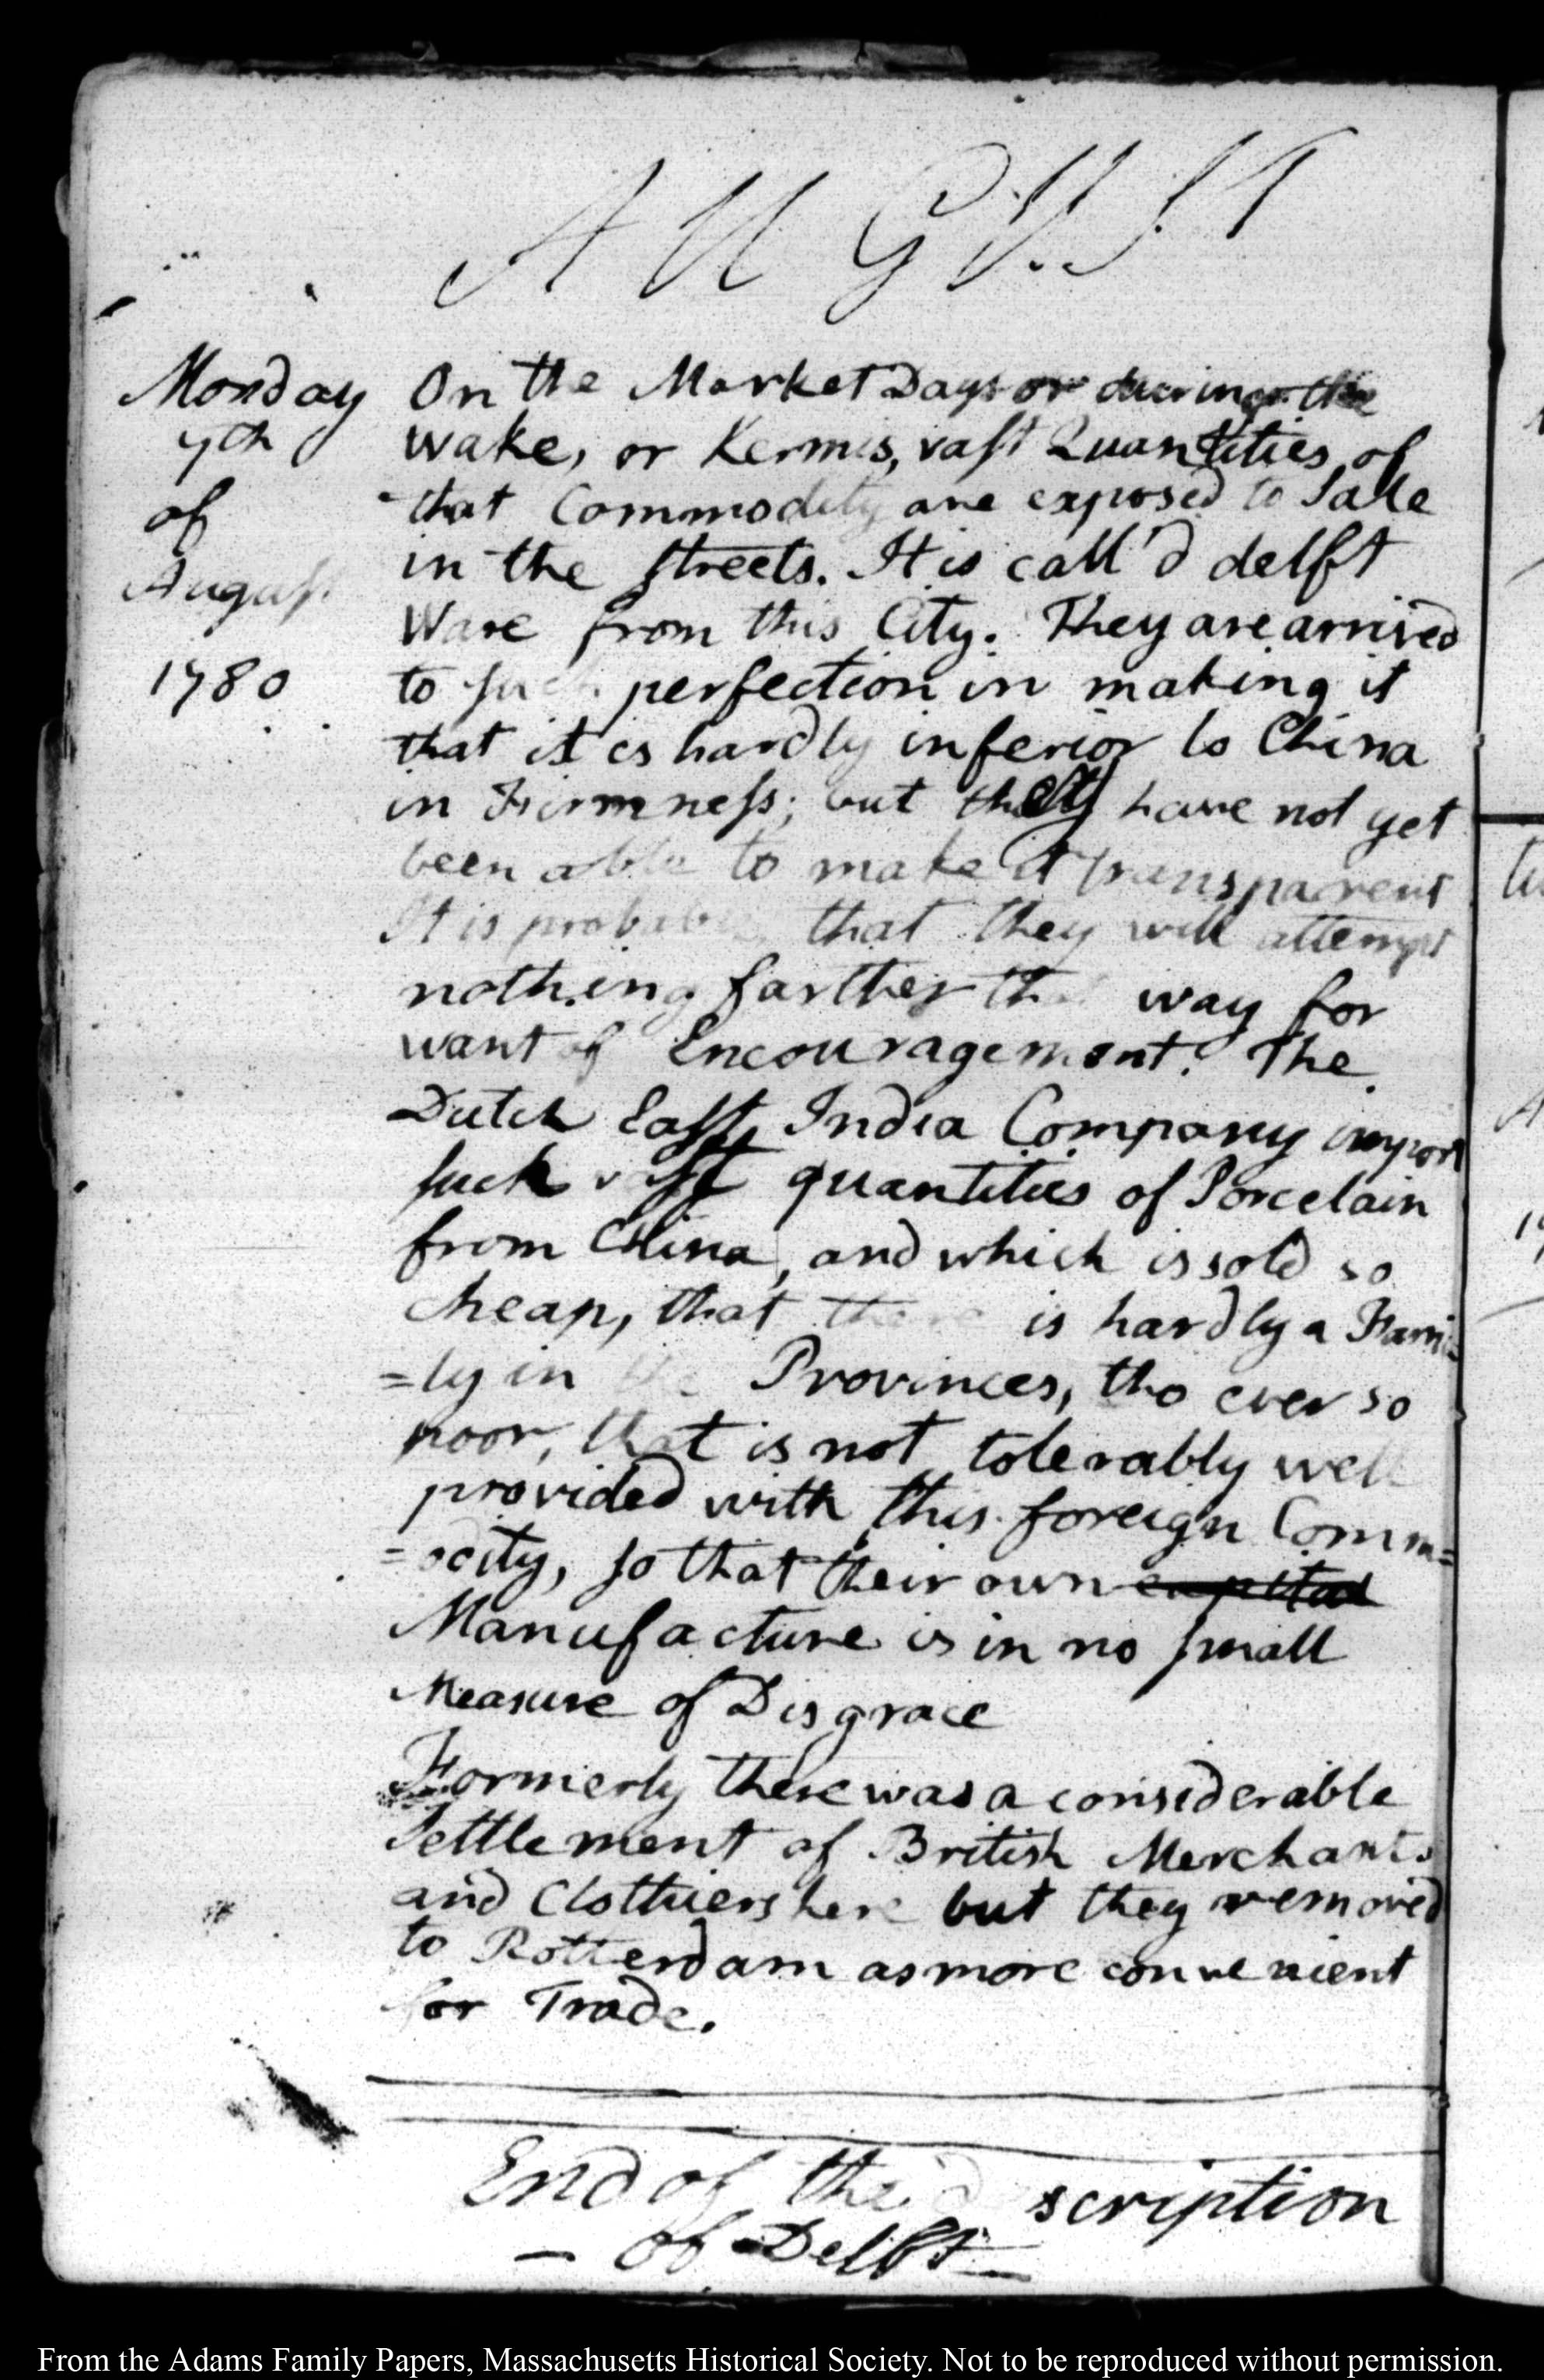 AUGUST
Monday
7th
of
August
1780
On the Market Days or during the
wake, or Kermis, vast Quantities of
that Commodity are exposed to Sale
in the streets. It is call'd delft
Ware from this City. They are arrived
to such perfection in making it
that it is hardly inferior to China
in Firmness; but they have not yet
been able to make it transparent
It is probable, that they will attempt
nothing farther that way for
want of Encouragement. The
Dutch East India Company import
such vast quantities of Porcelain
from China, and which is sold so
cheap, that there is hardly a Fami=
=ly in the Provinces, tho ever so
poor, that is not tolerably well
provided with this foreign Comm=
=odity, so that their own capital
Manufacture is in no small
Measure of Disgrace
Formerly there was a considerable
Settlement of British Merchants
and Clothiers here but they removed
to Rotterdam as more convenient
for Trade.
End of the description
— of Delft —
From the Adams Family Papers, Massachusetts Historical Society. Not to be reproduced without permission.